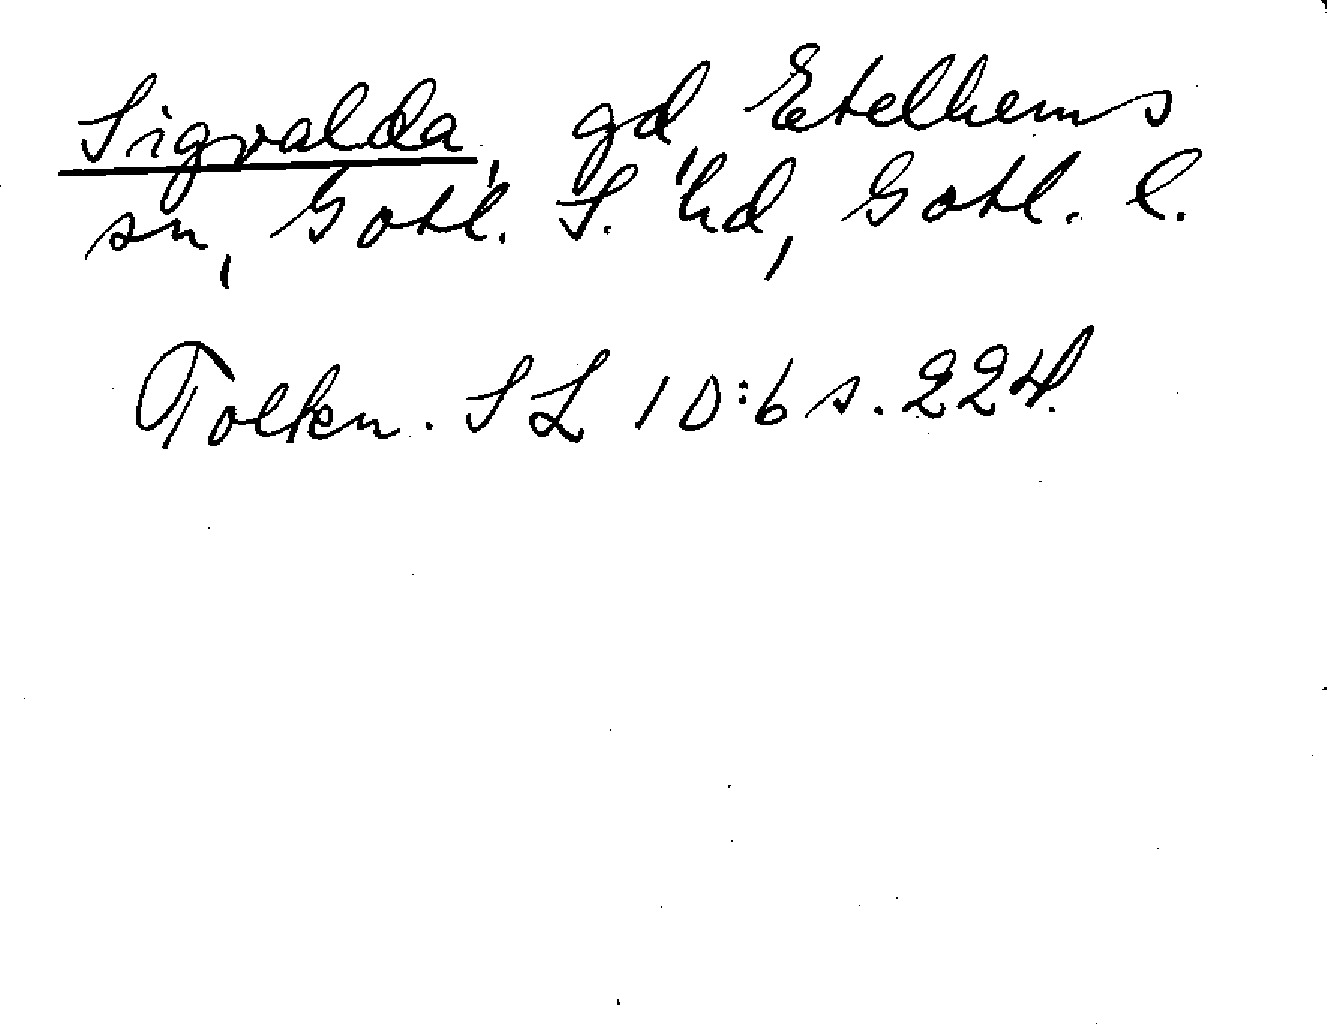 Sigvalda, gd, Etelhems
sn, Gotl. S. hd, Gotl. l.
Tolkn. SL 10:6 s. 224.